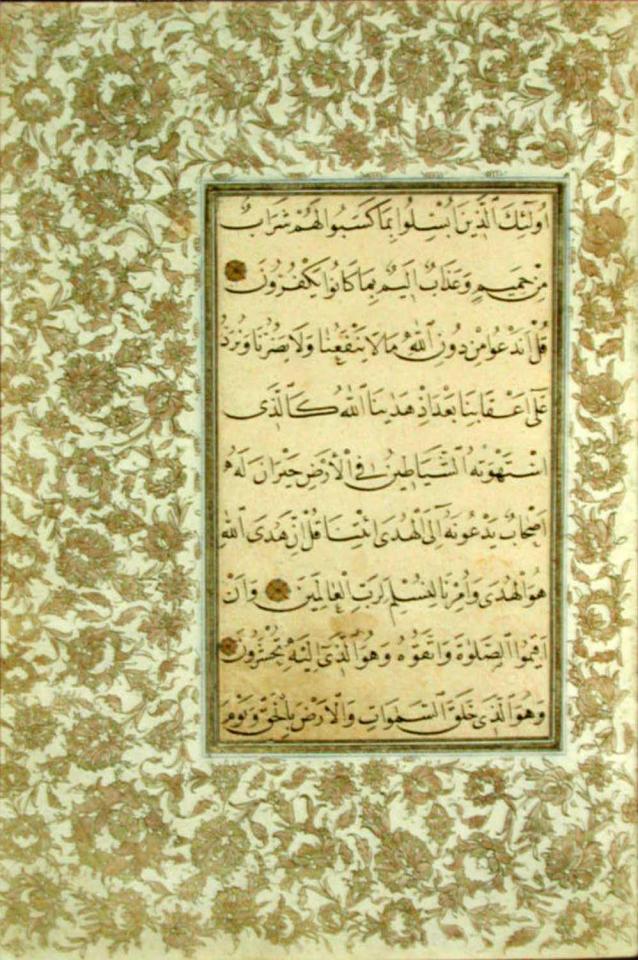 اُولٰٓئِكَ الَّذٖينَ اُبْسِلُوا بِمَا كَسَبُوا لَهُمْ شَرَابٌ
مِنْ حَمٖيمٍ وَعَذَابٌ اَلٖيمٌ بِمَا كَانُوا يَكْفُرُونَ
قُلْ اَنَدْعُوا مِنْ دُونِ اللّٰهِ مَا لَا يَنْفَعُنَا وَلَا يَضُرُّنَا وَنُرَدُّ
عَلٰٓى اَعْقَابِنَا بَعْدَ اِذْ هَدٰينَا اللّٰهُ كَالَّذِى
اسْتَهْوَتْهُ الشَّيَاطٖينُ فِى الْاَرْضِ حَيْرَانَ لَهُٓ
اَصْحَابٌ يَدْعُونَهُٓ اِلَى الْهُدَى ائْتِنَا قُلْ اِنَّ هُدَى اللّٰهِ
هُوَ الْهُدٰى وَاُمِرْنَا لِنُسْلِمَ لِرَبِّ الْعَالَمٖينَ وَاَنْ
اَقٖيمُوا الصَّلٰوةَ وَاتَّقُوهُ وَهُوَ الَّذٖٓى اِلَيْهِ تُحْشَرُونَ
وَهُوَ الَّذٖى خَلَقَ السَّمٰوَاتِ وَالْاَرْضَ بِالْحَقِّ وَيَوْمَ